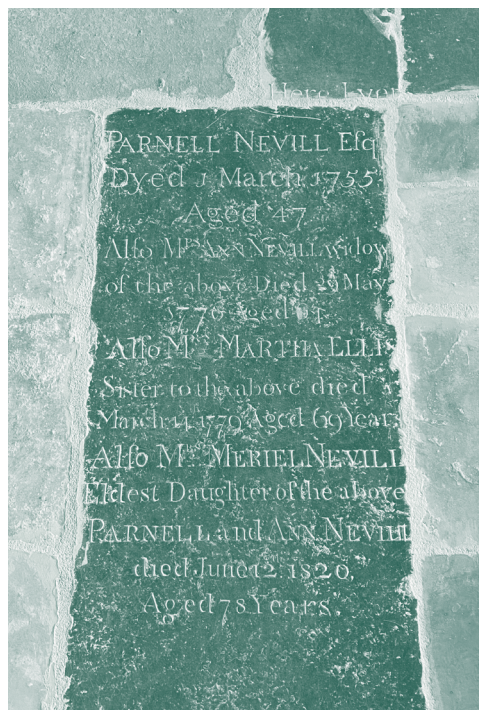 Here Lyes
PARNELL NEVILL Esq
Dyed 1 March 1755
Aged 47
Also Mrs ANN NEVILL widow
of the above Died 29 May
1776 Aged
Also Mrs MARTHA ELLIS
Sister to the above died
March 14 1779 Aged 69 Years
Also Mrs MERIEL NEVILL
Eldest Daughter of the above
PARNELL and ANN NEVILL
died June 12 1820,
Aged 78 Years.